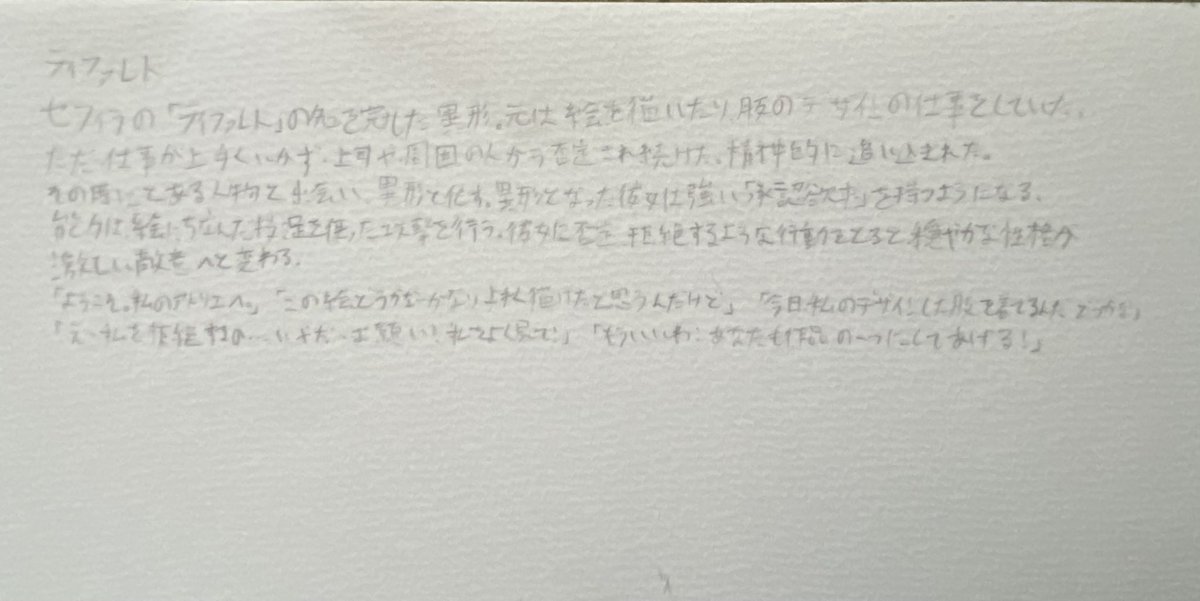 ティファレト
セフィラの「ティファレト」の名を冠した異形。元は絵を描いたり服のデザインの仕事をしていた。
ただ仕事が上手くいかず、上司や周囲の人から否定され続けた、精神的に追い込まれた。
その際にとある人物と出会い、異形と化す。異形となった彼女は強い「承認欲求」を持つようになる。
能力は絵にちなんだ を使った攻撃を行う。彼女に否定、拒絶するような行動をとると穏やかな性格が
激しい敵意へと変わる。
「ようこそ。私のアトリエへ。」「この絵どうかな…かなり上手く描けたと思うんだけど」「今日私のデザインした服を着てるんだ どうかな」
「え…私を拒絶するの…いやだ…お願い！私をよく見て！」「もういいわ…あなたも作品の一つにしてあげる！」